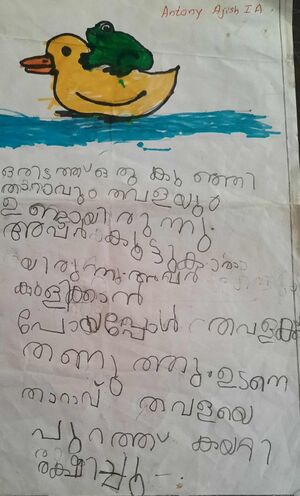 Antony Ajish I A
ഒരിടത്ത് ഒരു കുഞ്ഞി
താറാവും തവളയും
ഉണ്ടായിരുന്നു.
അവർ കൂട്ടുകാരാ
യിരുന്നു. അവർ
കുളിക്കാൻ
പോയപ്പോൾ തവളക്ക്
തണുത്തു. ഉടനെ
താറാവ് തവളയെ
പുറത്ത് കയറ്റി
രക്ഷിച്ചു.